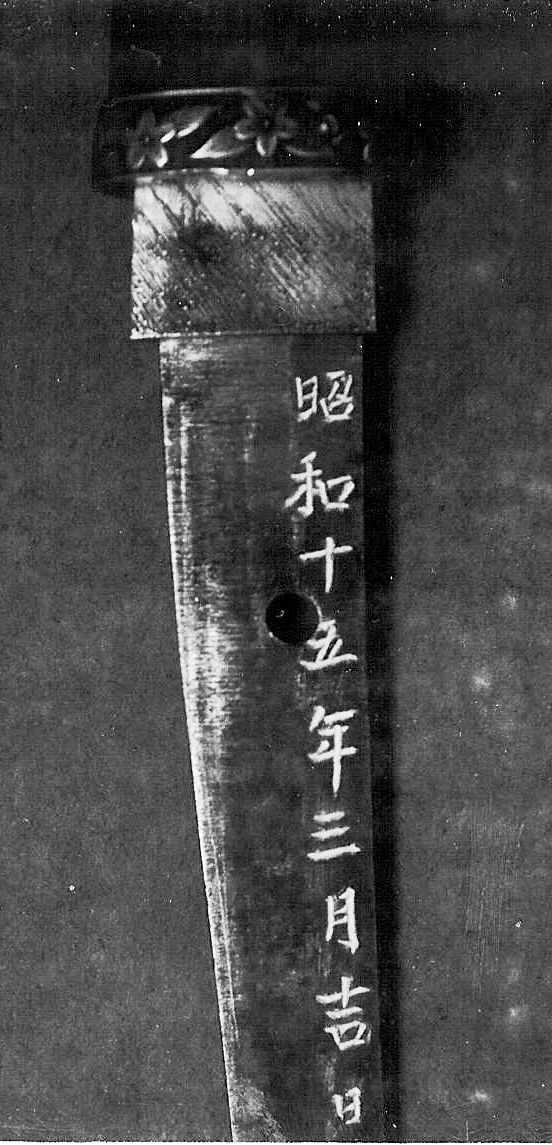 昭和十五年三月吉日